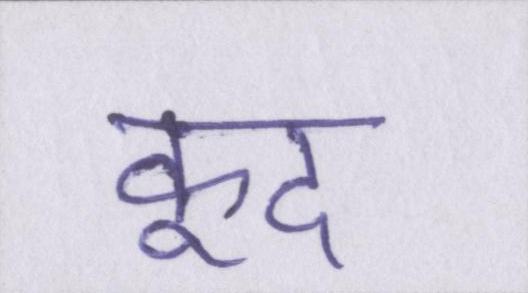 कूद